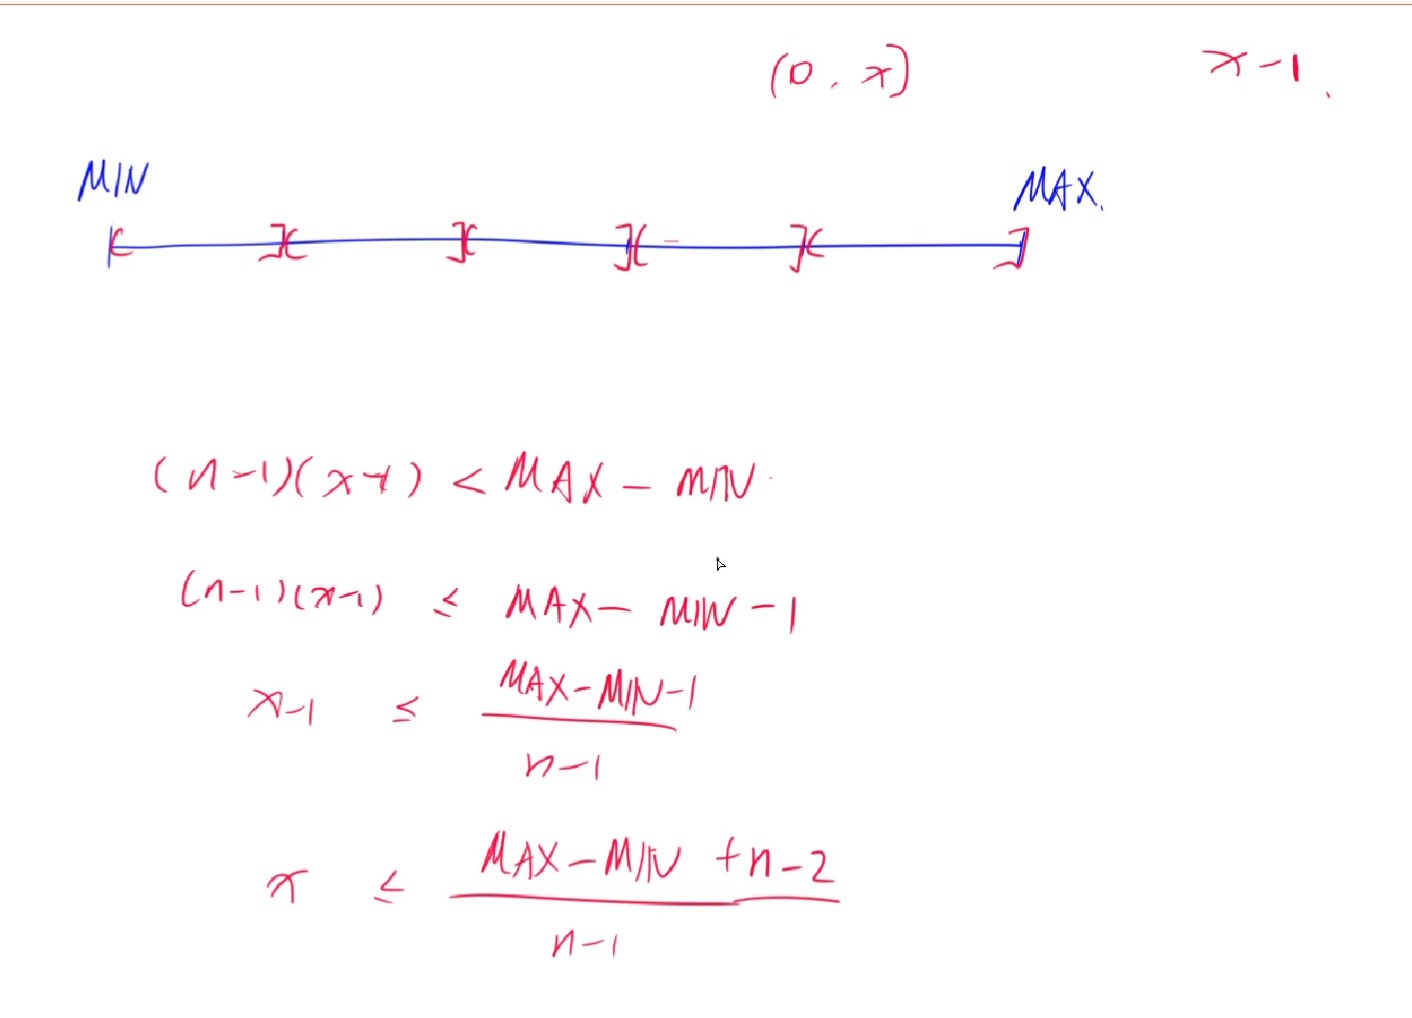 (0, x]    x-1.
MIN    MAX.
(n-1)(x-1) < MAX - MIN
(n-1)(x-1) ≤ MAX - MIN - 1
x-1 ≤ \frac{MAX-MIN-1}{n-1}
x ≤ \frac{MAX-MIN+n-2}{n-1}